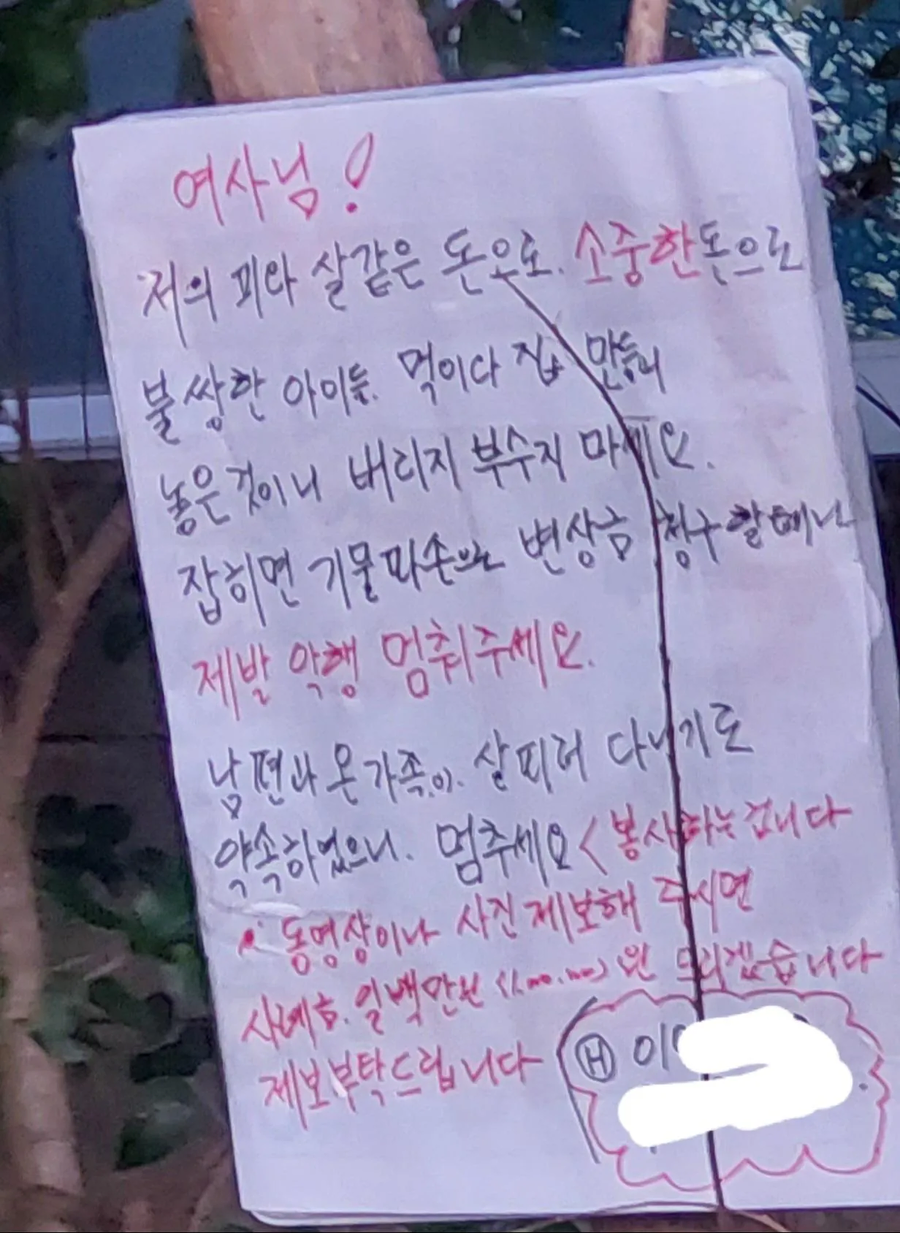 여사님!
저의 피와 살같은 돈으로. 소중한돈으로
불쌍한 아이들. 먹이다 집 만들러
놓은것이니 버리지 부수지 마세요.
잡히면 기물파손으로 변상금 청구할테니
제발 악행 멈춰주세요.
남편과 온가족.이. 살피러 다니기로
약속하였으니. 멈추세요<봉사하는겁니다
동영상이나 사진제보해 주시면
사례금. 일백만원 원 드리겠습니다
제보부탁드립니다
Ⓗ 010